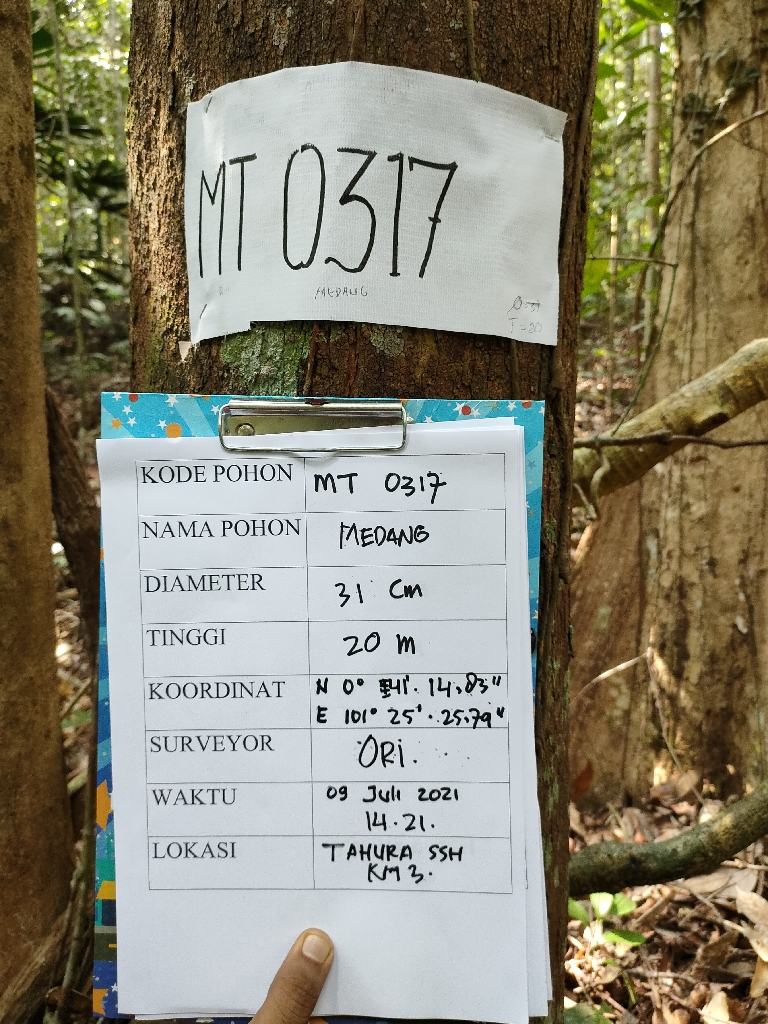 MT 0317
MEDANG
KODE POHON MT 0317
NAMA POHON MEDANG
DIAMETER 31 Cm
TINGGI 20 m
KOORDINAT N 0° 41'. 14.83"
E 101° 25'. 25.79"
SURVEYOR ORI.
WAKTU 09 Juli 2021
14.21.
LOKASI TAHURA SSH
KM 3.